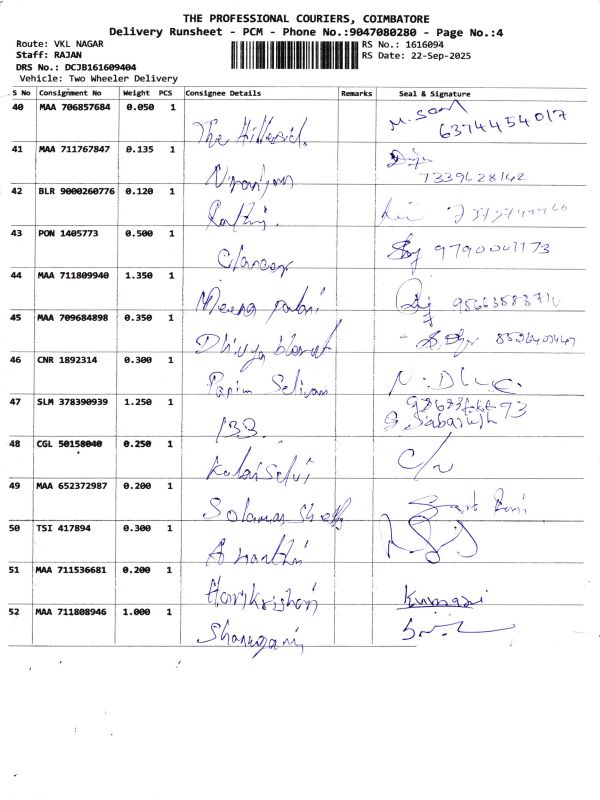 THE PROFESSIONAL COURIERS, COIMBATORE
Delivery Runsheet - PCM - Phone No.:9047080280 - Page No.:4
Route: VKL NAGAR
Staff: RAJAN
DRS No.: DCJB161609404
Vehicle: Two Wheeler Delivery
RS No.: 1616094
RS Date: 22-Sep-2025
S No Consignment No Weight PCS Consignee Details Remarks Seal & Signature
40 MAA 706857684 0.050 1
The 6374454017
41 MAA 711767847 0.135 1
Niranjan 7339628142
42 BLR 9000260776 0.120 1
43 PON 1405773 0.500 1
9790001173
44 MAA 711809940 1.350 1
Meena palani
45 MAA 709684898 0.350 1
Dhivya bharat
46 CNR 1892314 0.300 1
Selivan
47 SLM 378390939 1.250 1
133.
48 CGL 50158040 0.250 1
Kalaiselvi
49 MAA 652372987 0.200 1
50 TSI 417894 0.300 1
Ananthi
51 MAA 711536681 0.200 1
Harikrishan Kumari
52 MAA 711808946 1.000 1